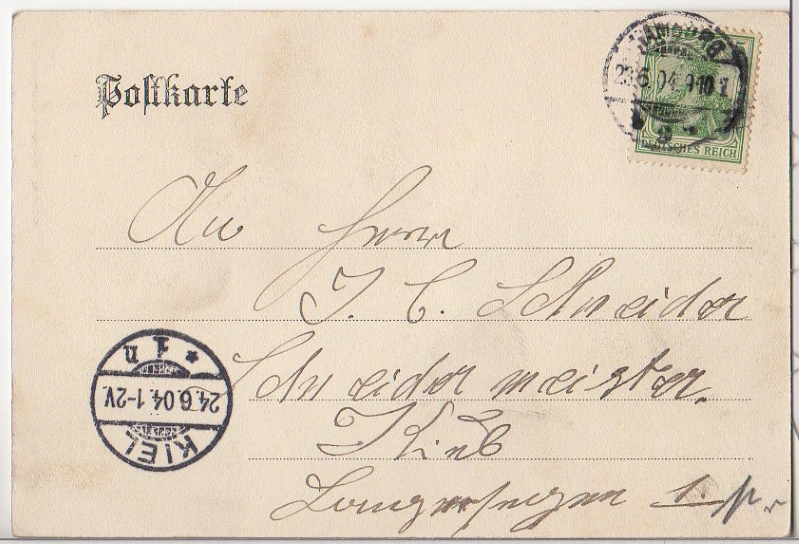 Postkarte
HAMBURG
23.6.04.9-10V
DEUTSCHES REICH
An Herrn
J. C. Schneider
Schneidermeister.
* 1 n
24.6.04.1-2V.
KIEL
1.